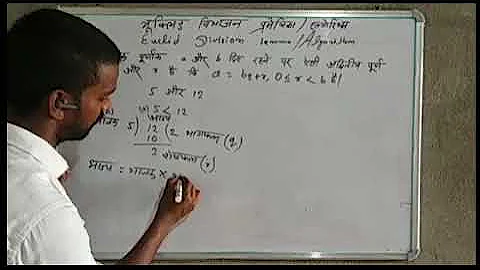 यूक्लिड विभाजन प्रमेयिका/एल्गोरिथ्म
Euclid Division lemma/Algorithm
पूर्णांक a और b दिए रहने पर ऐसी अद्वितीय पूर्ण
और r है कि a = bq+r, 0≤r<b है।
5 और 12
5 < 12
भाज्य
भाजक 5) 12 (2 भागफल (q)
10
2 शेषफल (r)
भाज्य = भाजक ×